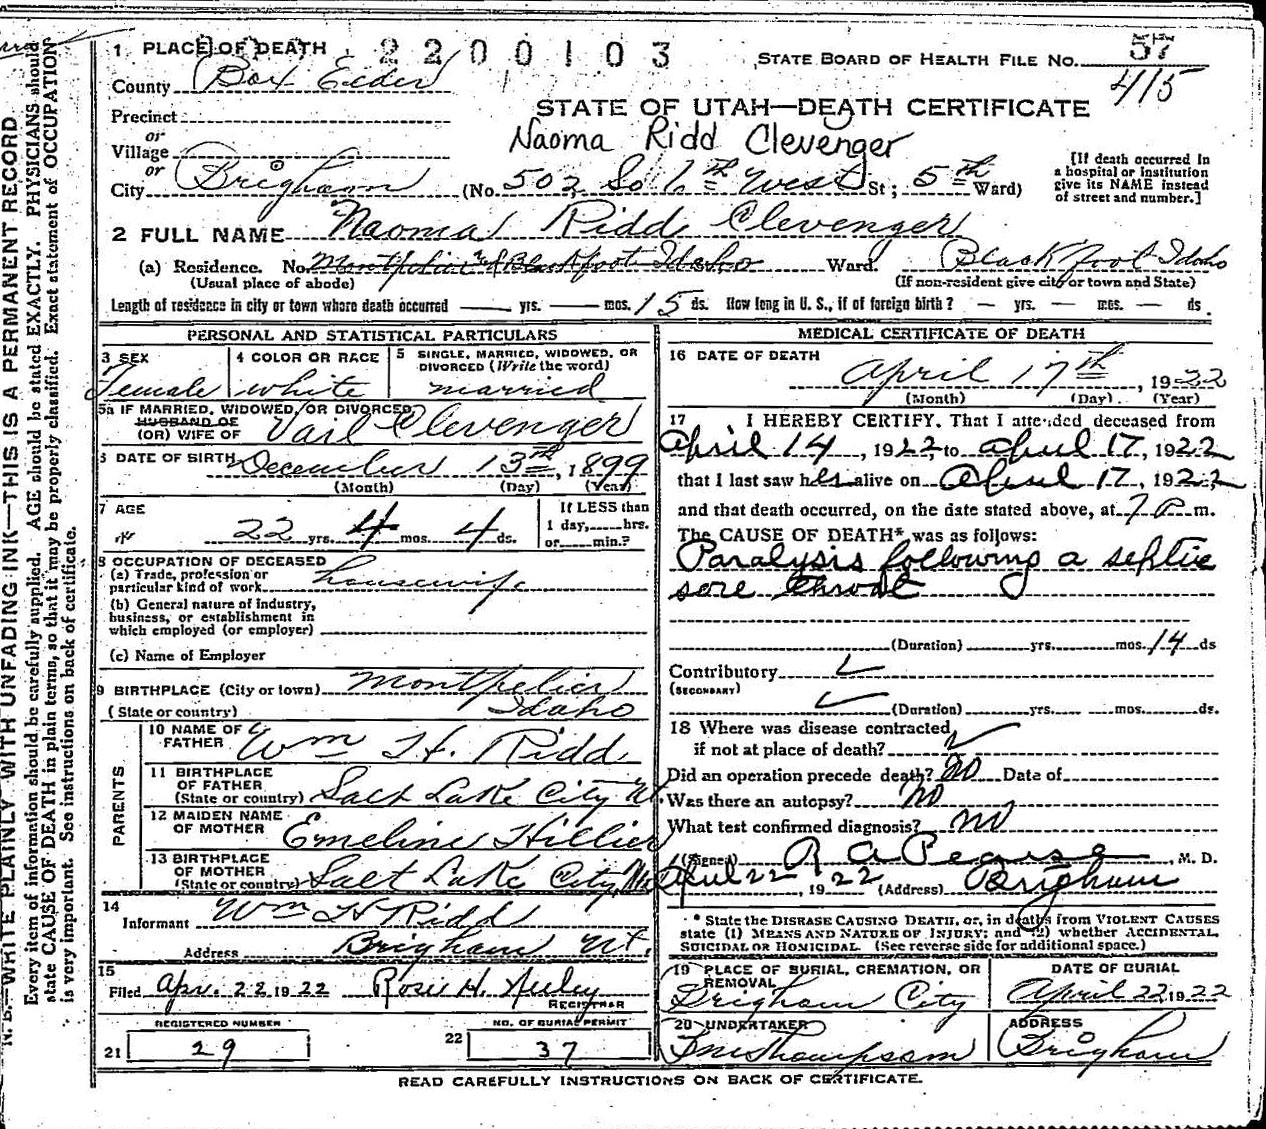 1 PLACE OF DEATH 2200103
STATE BOARD OF HEALTH FILE No. 57
415
County Box Elder
STATE OF UTAH—DEATH CERTIFICATE
Precinct
or
Naoma Ridd Clevenger
Village
or
City Brigham (No. 502 So 6th West St; 5th Ward)
[If death occurred in
a hospital or institution
give its NAME instead
of street and number.]
2 FULL NAME Naoma Ridd Clevenger
(a) Residence. No. Montpelier Blackfoot Idaho Ward. Blackfoot Idaho
(Usual place of abode) (If non-resident give city or town and State)
Length of residence in city or town where death occurred — yrs. — mos. 15 ds. How long in U. S., if of foreign birth? — yrs. — mos. — ds.
PERSONAL AND STATISTICAL PARTICULARS
3 SEX
Female
4 COLOR OR RACE
white
5 SINGLE, MARRIED, WIDOWED, OR
DIVORCED (Write the word)
married
5a IF MARRIED, WIDOWED, OR DIVORCED
HUSBAND OF
(OR) WIFE OF Vail Clevenger
6 DATE OF BIRTH December 13th, 1899
(Month) (Day) (Year)
7 AGE
22 yrs. 4 mos. 4 ds.
If LESS than
1 day, hrs.
or min.?
8 OCCUPATION OF DECEASED
(a) Trade, profession or
particular kind of work housewife
(b) General nature of industry,
business, or establishment in
which employed (or employer)
(c) Name of Employer
9 BIRTHPLACE (City or town) Montpelier
(State or country) Idaho
PARENTS
10 NAME OF
FATHER Wm H. Ridd
11 BIRTHPLACE
OF FATHER
(State or country) Salt Lake City Ut.
12 MAIDEN NAME
OF MOTHER Emeline Hillier
13 BIRTHPLACE
OF MOTHER
(State or country) Salt Lake City
14
Informant Wm H Ridd
Address Brigham Ut.
15
Filed Apr. 22, 1922 Rosie H.
REGISTRAR
REGISTERED NUMBER
21 29
NO. OF BURIAL PERMIT
22 37
MEDICAL CERTIFICATE OF DEATH
16 DATE OF DEATH
April 17th, 1922
(Month) (Day) (Year)
17 I HEREBY CERTIFY, That I attended deceased from
April 14, 1922, to April 17, 1922
that I last saw her alive on April 17, 1922,
and that death occurred, on the date stated above, at 7 P. m.
The CAUSE OF DEATH* was as follows:
Paralysis following a septic
sore throat
(Duration) yrs. mos. 14 ds
Contributory
(SECONDARY)
(Duration) yrs. mos. ds.
18 Where was disease contracted
if not at place of death?
Did an operation precede death? no Date of
Was there an autopsy? no
What test confirmed diagnosis? no
(Signed) R A Pearse, M. D.
April 22, 1922 (Address) Brigham
* State the DISEASE CAUSING DEATH, or, in deaths from VIOLENT CAUSES
state (1) MEANS AND NATURE OF INJURY; and (2) whether ACCIDENTAL,
SUICIDAL OR HOMICIDAL. (See reverse side for additional space.)
19 PLACE OF BURIAL, CREMATION, OR
REMOVAL
Brigham City
DATE OF BURIAL
April 22, 1922
20 UNDERTAKER
Thompson
ADDRESS
Brigham
READ CAREFULLY INSTRUCTIONS ON BACK OF CERTIFICATE.
N. B.—WRITE PLAINLY WITH UNFADING INK—THIS IS A PERMANENT RECORD
Every item of information should be carefully supplied. AGE should be stated EXACTLY. PHYSICIANS should
state CAUSE OF DEATH in plain terms, so that it may be properly classified. Exact statement of OCCUPATION
is very important. See instructions on back of certificate.